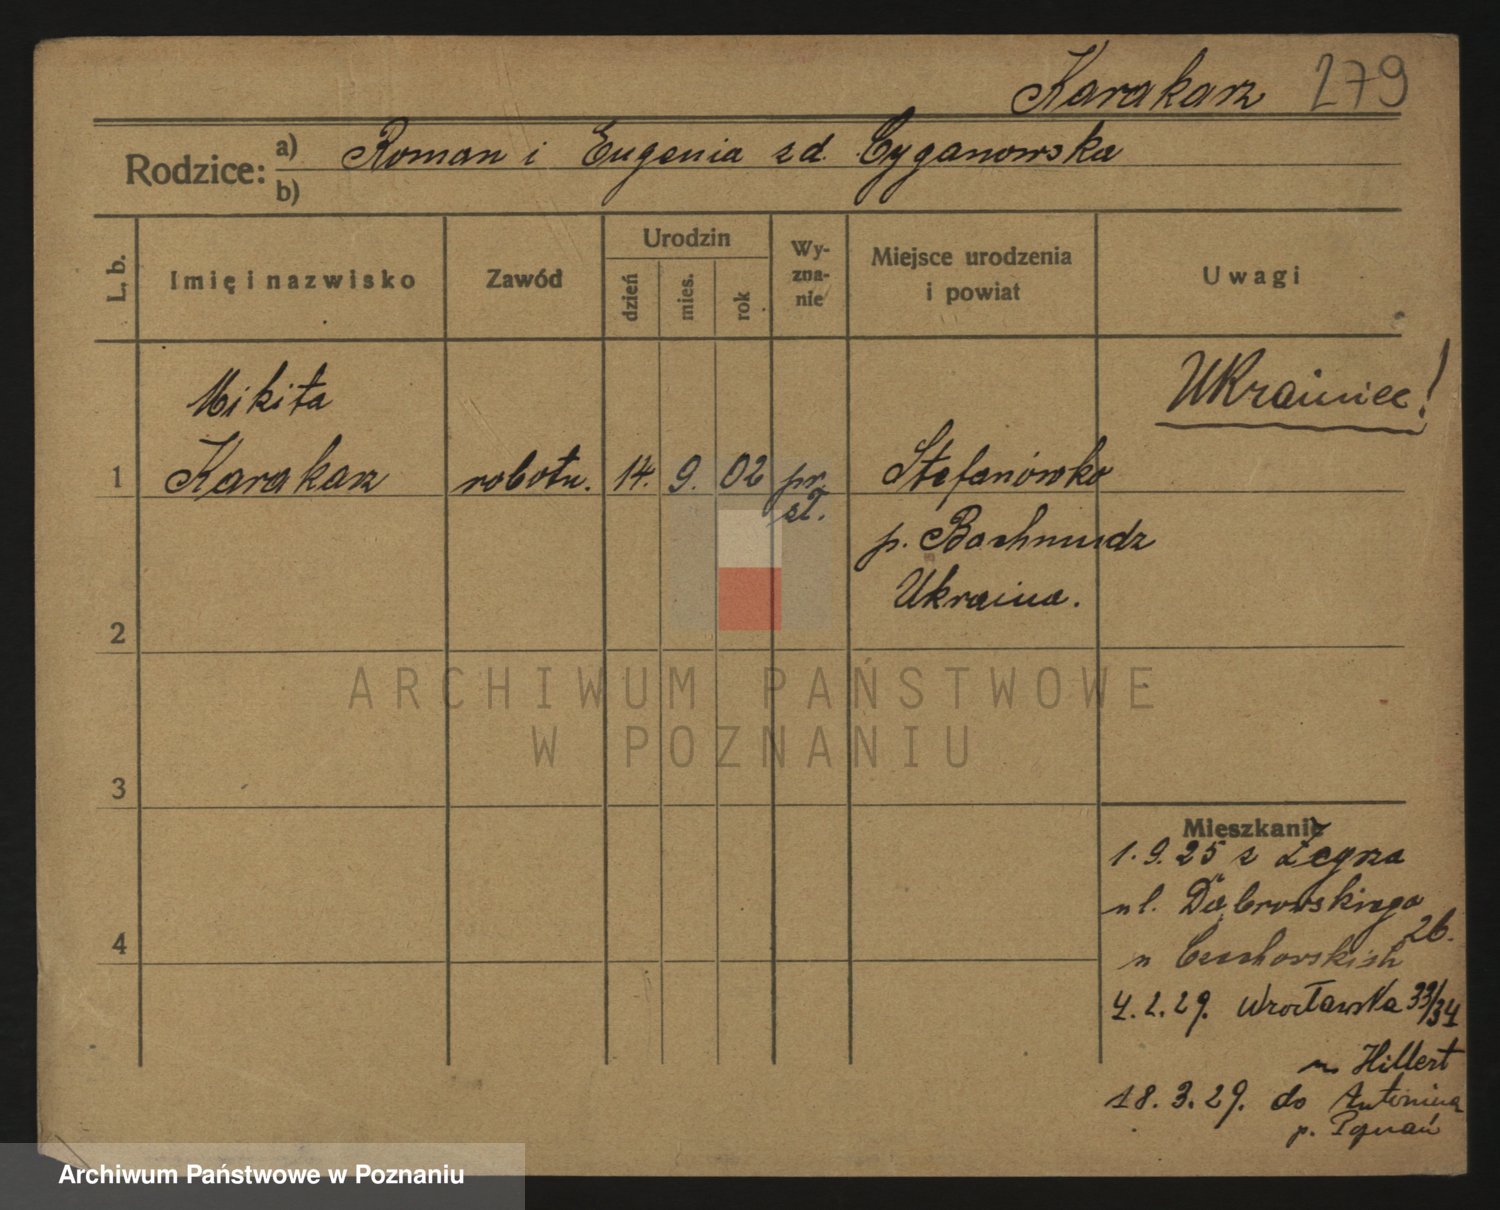 Karakarz 279
Rodzice: a) Roman i Eugenia zd. Cyganowska
b)
L. b.
Imię i nazwisko
Zawód
Urodzin
dzień
mies.
rok
Wy-
zna-
nie
Miejsce urodzenia
i powiat
Uwagi
Mikita
Ukrainiec!
1 Karakarz robotn. 14. 9. 02 pr. Stefanówko
sł.
p. Bachmudz
Ukraina.
2
ARCHIWUM PAŃSTWOWE
W POZNANIU
3
Mieszkanie
1.9.25 z Zegrza
ul. Dąbrowskiego
26.
4
u Czechowskich
4.2.29. Wrocławska 33/34
u Hillert
18.3.29. do Antonina
p. Poznań
Archiwum Państwowe w Poznaniu